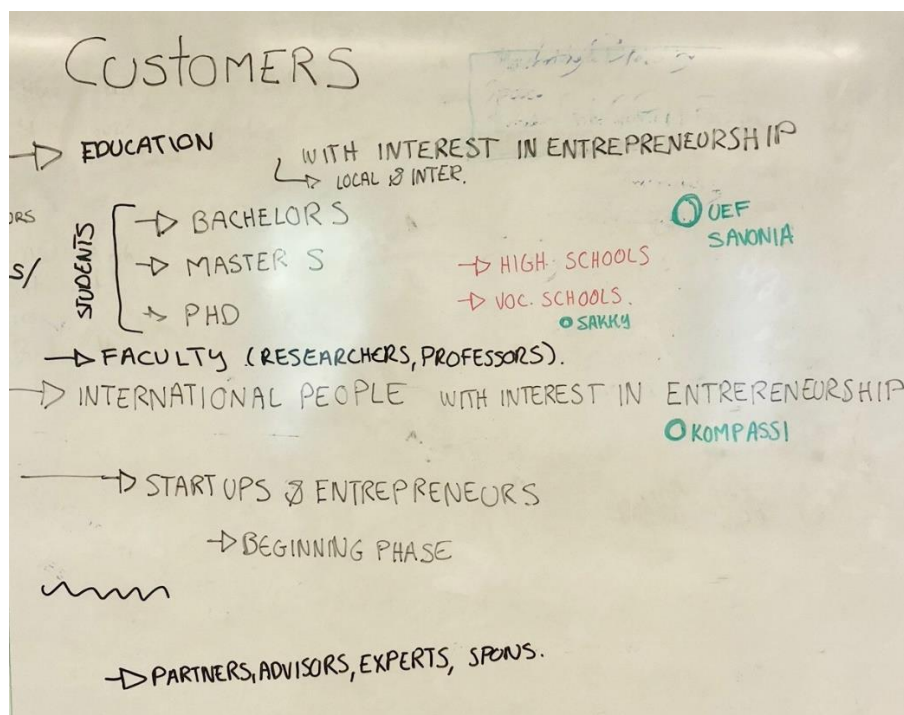 CUSTOMERS
EDUCATION
WITH INTEREST IN ENTREPRENEURSHIP
LOCAL & INTER.
STUDENTS
BACHELOR S
MASTER S
PHD
UEF
SAVONIA
HIGH SCHOOLS
VOC. SCHOOLS.
SAKKY
FACULTY (RESEARCHERS, PROFESSORS).
INTERNATIONAL PEOPLE WITH INTEREST IN ENTRERENEURSHIP
KOMPASSI
START UPS & ENTREPRENEURS
BEGINNING PHASE
PARTNERS, ADVISORS, EXPERTS, SPONS.